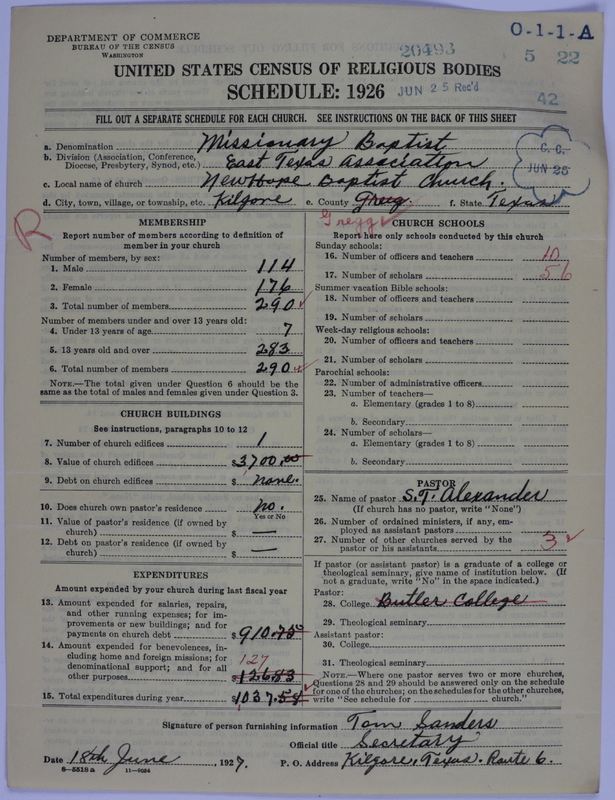 DEPARTMENT OF COMMERCE
BUREAU OF THE CENSUS
WASHINGTON
O-1-1-A
20493
5 22
UNITED STATES CENSUS OF RELIGIOUS BODIES
SCHEDULE: 1926
JUN 25 Rec'd
42
FILL OUT A SEPARATE SCHEDULE FOR EACH CHURCH. SEE INSTRUCTIONS ON THE BACK OF THIS SHEET
a. Denomination Missionary Baptist
b. Division (Association, Conference, Diocese, Presbytery, Synod, etc.) East Texas Association
C. C.
JUN 25
c. Local name of church New Hope Baptist Church.
d. City, town, village, or township, etc. Kilgore e. County Greig. f. State Texas
Gregg
R
MEMBERSHIP
Report number of members according to definition of
member in your church
Number of members, by sex:
1. Male 114
2. Female 176
3. Total number of members 290
Number of members under and over 13 years old:
4. Under 13 years of age 7
5. 13 years old and over 283
6. Total number of members 290
NOTE.—The total given under Question 6 should be
same as the total of males and females given under Question 3.
CHURCH BUILDINGS
See instructions, paragraphs 10 to 12
7. Number of church edifices 1
8. Value of church edifices $3700.00
9. Debt on church edifices $ none.
10. Does church own pastor's residence no.
Yes or No
11. Value of pastor's residence (if owned by
church) $ —
12. Debt on pastor's residence (if owned by
church) $ —
EXPENDITURES
Amount expended by your church during last fiscal year
13. Amount expended for salaries, repairs,
and other running expenses; for im-
provements or new buildings; and for
payments on church debt $910.75
14. Amount expended for benevolences, in-
cluding home and foreign missions; for
denominational support; and for all
127
other purposes $126.83
15. Total expenditures during year $1037.58
CHURCH SCHOOLS
Report here only schools conducted by this church
Sunday schools:
16. Number of officers and teachers 10
17. Number of scholars 56
Summer vacation Bible schools:
18. Number of officers and teachers
19. Number of scholars
Week-day religious schools:
20. Number of officers and teachers
21. Number of scholars
Parochial schools:
22. Number of administrative officers
23. Number of teachers—
a. Elementary (grades 1 to 8)
b. Secondary
24. Number of scholars—
a. Elementary (grades 1 to 8)
b. Secondary
PASTOR
25. Name of pastor S.T. Alexander
(If church has no pastor, write "None")
26. Number of ordained ministers, if any, em-
ployed as assistant pastors
27. Number of other churches served by the
pastor or his assistants 3
If pastor (or assistant pastor) is a graduate of a college or
theological seminary, give name of institution below. (If
not a graduate, write "No" in the space indicated.)
Pastor:
28. College Butler College
29. Theological seminary
Assistant pastor:
30. College
31. Theological seminary
NOTE.—Where one pastor serves two or more churches,
Questions 28 and 29 should be answered only on the schedule
for one of the churches; on the schedules for the other churches,
write "See schedule for church."
Signature of person furnishing information Tom Sanders
Official title Secretary
Date 18th June, 1927. P. O. Address Kilgore, Texas. Route 6.
6-5518 a 11-9034